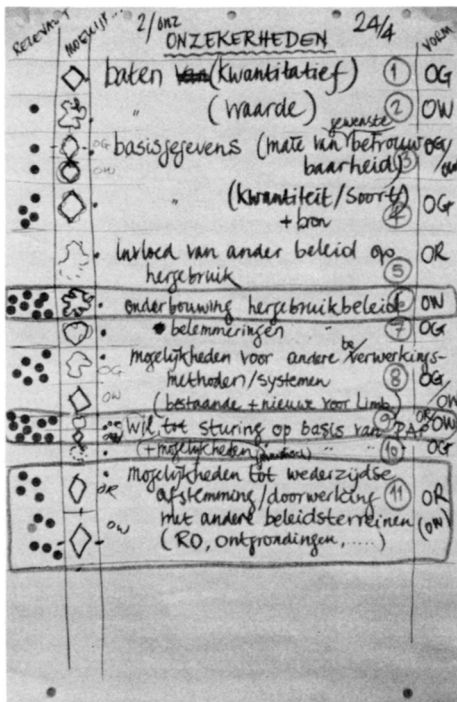 2/onz 24/4
RELEVANT MOEILIJK... ONZEKERHEDEN VORM
baten van (kwantitatief) 1 OG
" (waarde) 2 OW
gewenste
OG basisgegevens (mate van betrouw OG
OW baarheid) 3 /OW
" (kwantiteit/soort) 4 OG
+ bron
invloed van ander beleid op OR
hergebruik 5
onderbouwing hergebruikbeleid 6 OW
belemmeringen " 7 OG
be/
mogelijkheden voor andere verwerkings-
OG methoden/systemen 8 OG
OW (bestaande + nieuwe voor Limb.) /OW
wil tot sturing op basis van PAP 9 OR/OW
(+ mogelijkheden) 10 OG
mogelijkheden tot wederzijdse
OR afstemming/doorwerking 11 OR
OW met andere beleidsterreinen (OW)
(RO, ontgrondingen, .....)